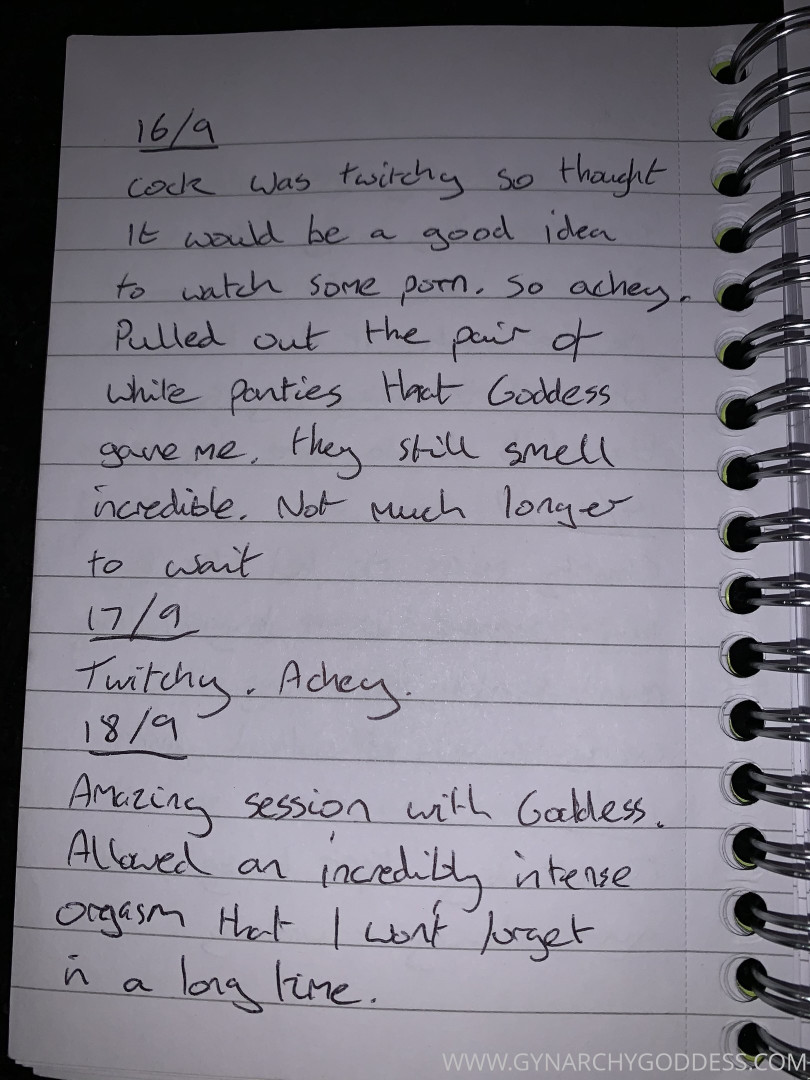 16/9
cock was twitchy so thought
It would be a good idea
to watch some porn. So achey.
Pulled out the pair of
white panties that Goddess
gave me. they still smell
incredible. Not much longer
to wait
17/9
Twitchy. Achey.
18/9
Amazing session with Goddess.
Allowed an incredibly intense
orgasm that I won't forget
in a long time.
WWW.GYNARCHYGODDESS.COM